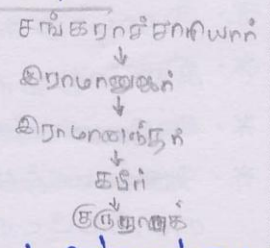 சங்கராச்சாரியார்
↓
இராமானுஜர்
↓
இராமானந்தர்
↓
கபீர்
↓
குருநானக்